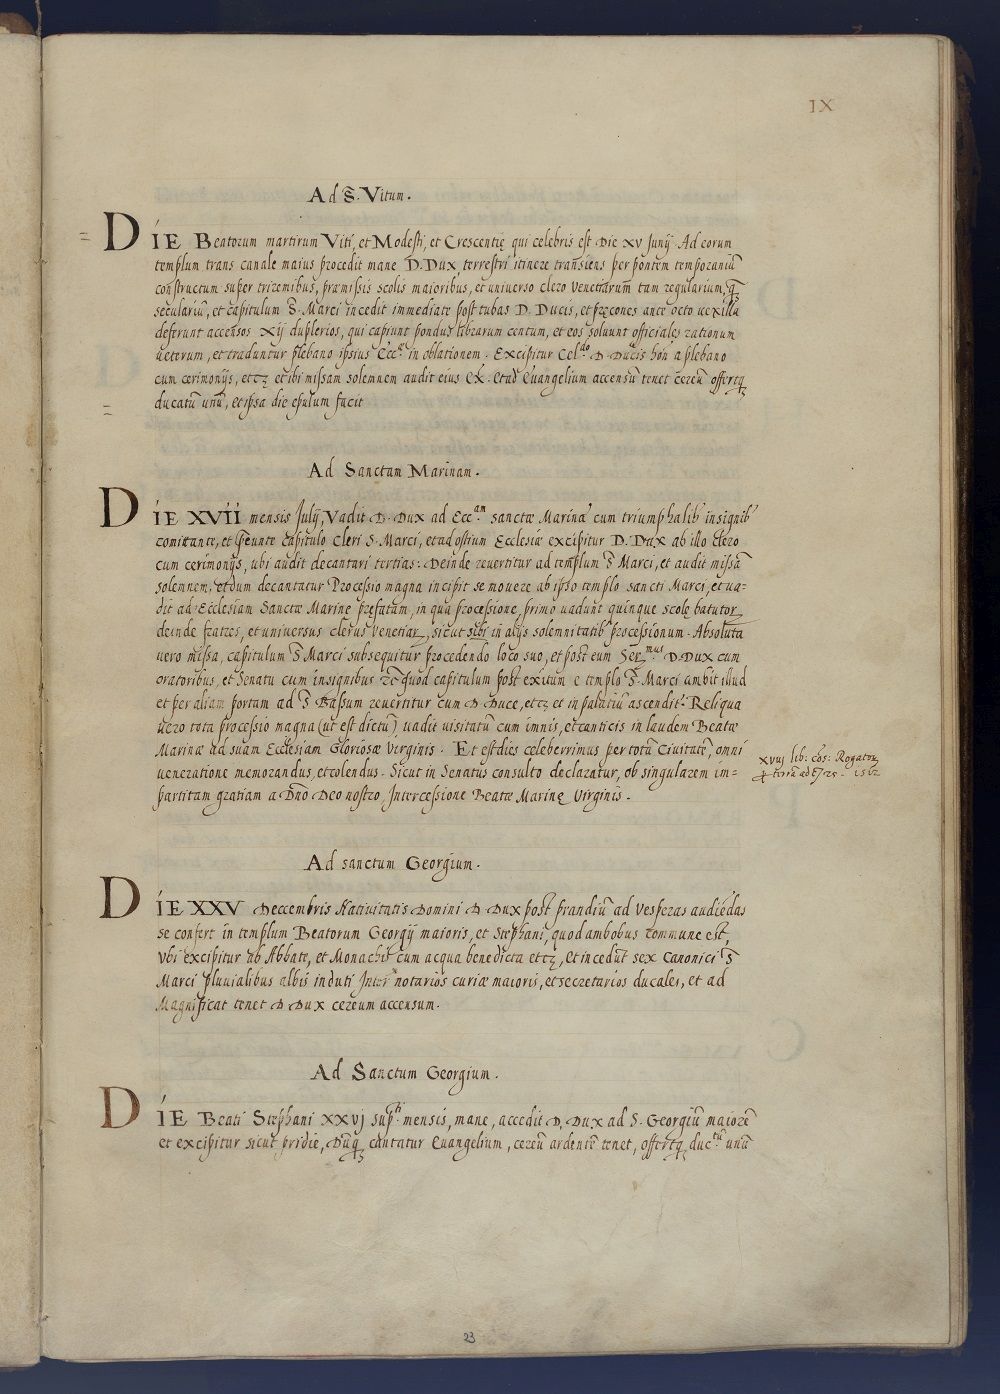 IX
Ad S̃. Vitum.
DIE Beatorum martirum Viti, et Modesti, et Crescentię qui celebris est Die xv Junij. Ad eorum
templum trans canale maius procedit mane D. Dux, terrestri itinere transiens per pontem temporaniũ
constructum super triremibus, præmissis scolis maioribus, et universo clero Venetiarum tam regularium, q̃
seculariũ, et capitulum S̃. Marci incedit immediate post tubas D. Ducis, et pręcones ante octo uexilla
deferunt accensos xij duplerios, qui capiunt pondus librarum centum, et eos soluunt officiales rationum
ueterum, et traduntur plebano ipsius Eccᵉ. in oblationem. Excipitur Cel.do D. Ducis hon a plebano
cum cerimonijs, etcʒ et ibi missam solemnem audit eius Ex. et ad Euangelium accensũ tenet cereũ offertqʒ
ducatũ unũ, et ipsa die epulum facit
Ad Sanctam Marinam.
DIE XVII mensis Julij, Vadit D. Dux ad Ecc.am sanctæ Marinæ cum triumphalib' insignib'
comitante, et p̃eunte capitulo Cleri S. Marci, et ad ostium Ecclesiæ excipitur D. Dux ab illo Clero
cum cerimonijs, ubi audit decantari tertias: Deinde reuertitur ad templum S̃ Marci, et audit missã
solemnem, et dum decantatur Processio magna incipit se mouere ab ipso templo sancti Marci, et ua=
dit ad Ecclesiam Sanctæ Marinę prefatam, in qua processione, primo uadunt quinque scolę batutoꝝ
deinde fratres, et uniuersus clerus Venetiaꝝ, sicut sibi in alijs solemnitatib' processionum. Absoluta
uero missa, capitulum S̃ Marci subsequitur procedendo loco suo, et post eum Ser.mus D. Dux cum
oratoribus, et Senatu cum insignibus &c̃ quod capitulum post exitum e templo S̃. Marci ambit illud
et per aliam portam ad S̃ Bassum reuertitur cum D. Duce, etcʒ et in palatiũ ascendit. Reliqua
uero tota processio magna (ut est dictũ) uadit uisitatũ cum imnis, et canticis in laudem Beatæ
Marinæ ad suam Ecclesiam Gloriosæ Virginis. Et est dies celeberrimus per totã Ciuitatẽ, omni
ueneratione memorandus, et colendus. Sicut in Senatus consulto declaratur, ob singularem im=
partitam gratiam a Dño Deo nostro, Intercessione Beatæ Marinę Virginis.
xvij lib: cõs: Rogatoꝝ
ꝑ terrã ad 725. 1512
Ad sanctum Georgium.
DIE XXV Deccembris Natiuitatis Domini D. Dux post prandiũ ad Vesperas audiẽdas
se confert in templum Beatorum Georgij maioris, et Stephani, quod ambobus commune est,
Vbi excipitur ab Abbate, et Monachis cum acqua benedicta etcʒ, et incedũt sex Canonici S̃
Marci pluuialibus albis induti Inter notarios curiæ maioris, et secretarios ducales, et ad
Magnificat tenet D Dux cereum accensum.
Ad Sanctum Georgium.
DIE Beati Stephani xxvj sup.ti mensis, mane, accedit D. Dux ad S. Georgiũ maiorẽ
et excipitur sicut pridie, Dũqʒ cantatur Euangelium, cereũ ardentẽ tenet, offertqʒ duc.tũ unũ
23